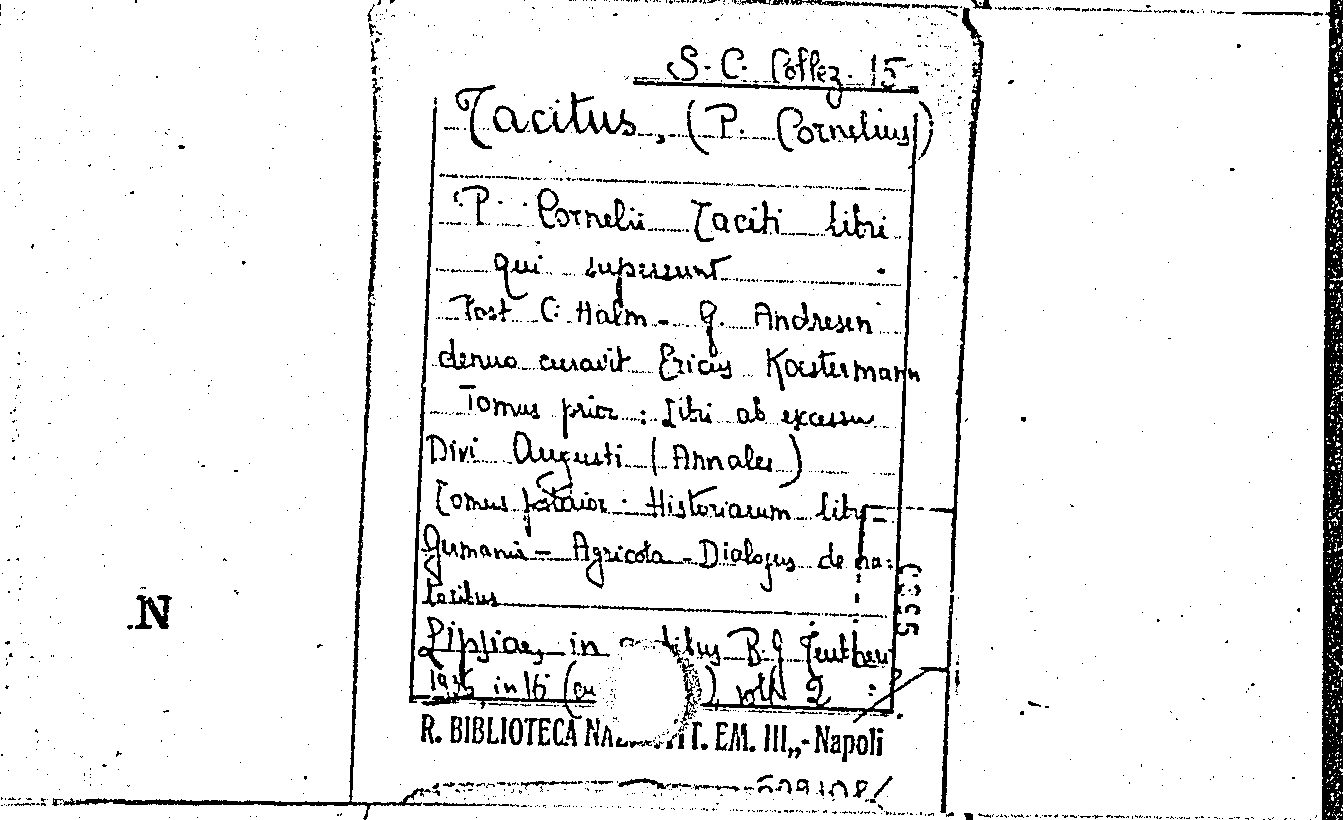 S. C. Collez. 15
Tacitus, (P. Cornelius)
P. Cornelii Taciti libri
qui supersunt
Post C. Halm - G. Andresen
denuo curavit Ericus Koestermann
Tomus prior: Libri ab excessu
Divi Augusti (Annales)
Tomus posterior: Historiarum libri -
Germania - Agricola - Dialogus de ora:
toribus
Lipsiae, in B. G. Teubneri
in 16 voll. 2
R. BIBLIOTECA EM. III„-Napoli
N